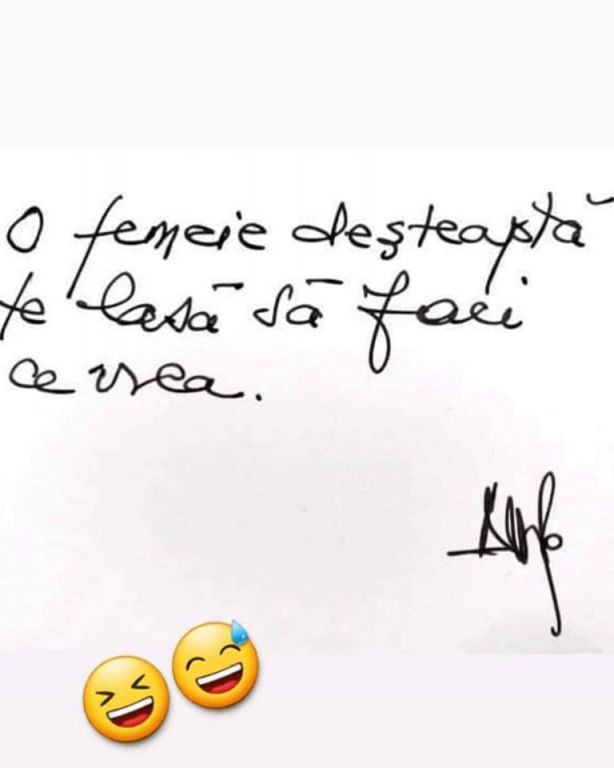 O femeie deşteaptă
te lasă să faci
ce vrea.